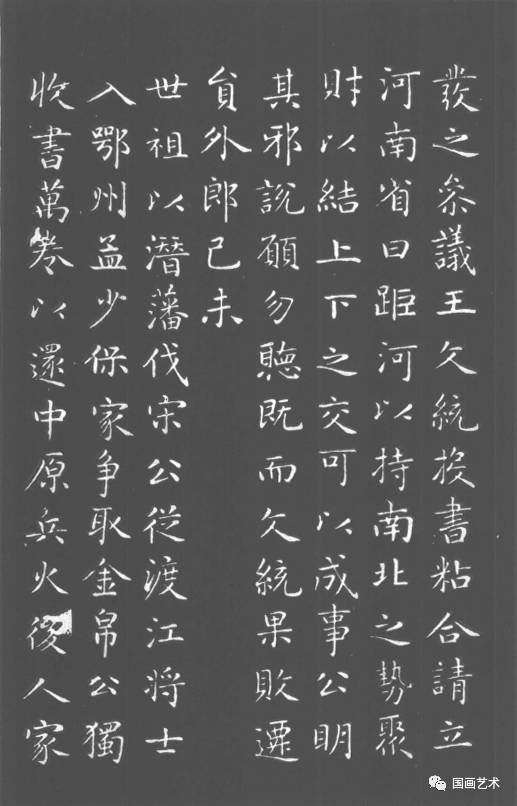 發之叅議王文統投書粘合請立
河南省曰距河以持南北之勢聚
財以結上下之交可以成事公明
其邪說願勿聽既而文統果敗遷
貟外郎己未
世祖以潛藩伐宋公從渡江將士
入鄂州孟少保家爭取金帛公獨
收書萬卷以還中原兵火後人家
国画艺术